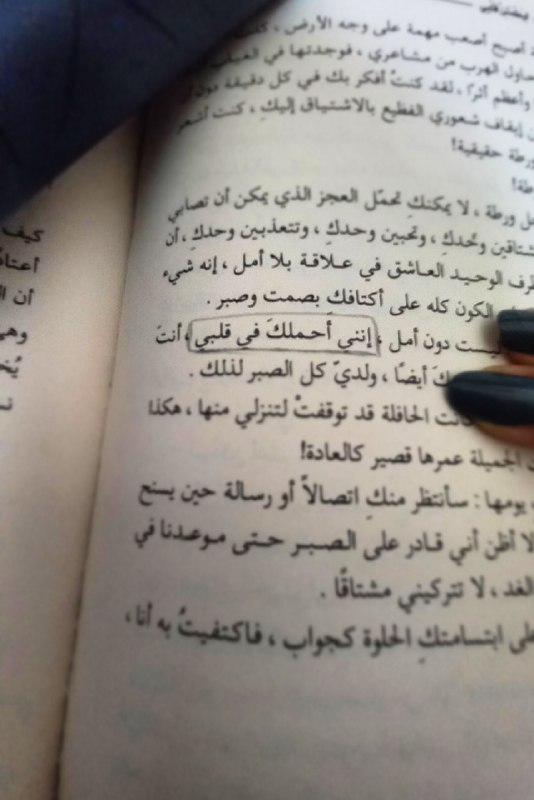 ة أصبح أصعب مهمة على وجه الأرض ،
حاول الهرب من مشاعري ، فوجدتها في
وأعظم أثر؟ ، لقد كنتُ أفكر بك في كل دقيقة دون
إيقاف شعوري الفظيع بالاشتياق إليكِ ، كنت أشعر
رطة حقيقية!
طة!
ورطة ، لا يمكنكِ تحمّل العجز الذي يمكن أن تصابي
شتاقين وحْدكِ ، وتحبين وحدكِ ، وتتعذبين وحدكِ ، أن
طرف الوحيد العاشق في علاقة بلا أمل ، إنه شيء
الكون كله على أكتافكِ بصمت وصبر .
ليست دون أمل ، إنني أحملكَ في قلبي ، أنتَ
كَ أيضًا ، ولديّ كل الصبر لذلك .
كانت الحافلة قد توقفتْ لتنزلي منها ، هكذا
الجميلة عمرها قصير كالعادة!
يومها : سأنتظر منكِ اتصالاً أو رسالة حين يسنح
لا أظن أني قادر على الصبر حتى موعدنا في
الغد ، لا تتركيني مشتاقًا .
على ابتسامتكِ الحلوة كجواب ، فاكتفيتُ به أنا ،
كيف
أعتاد
أن ال
وهي
يُخ
نس